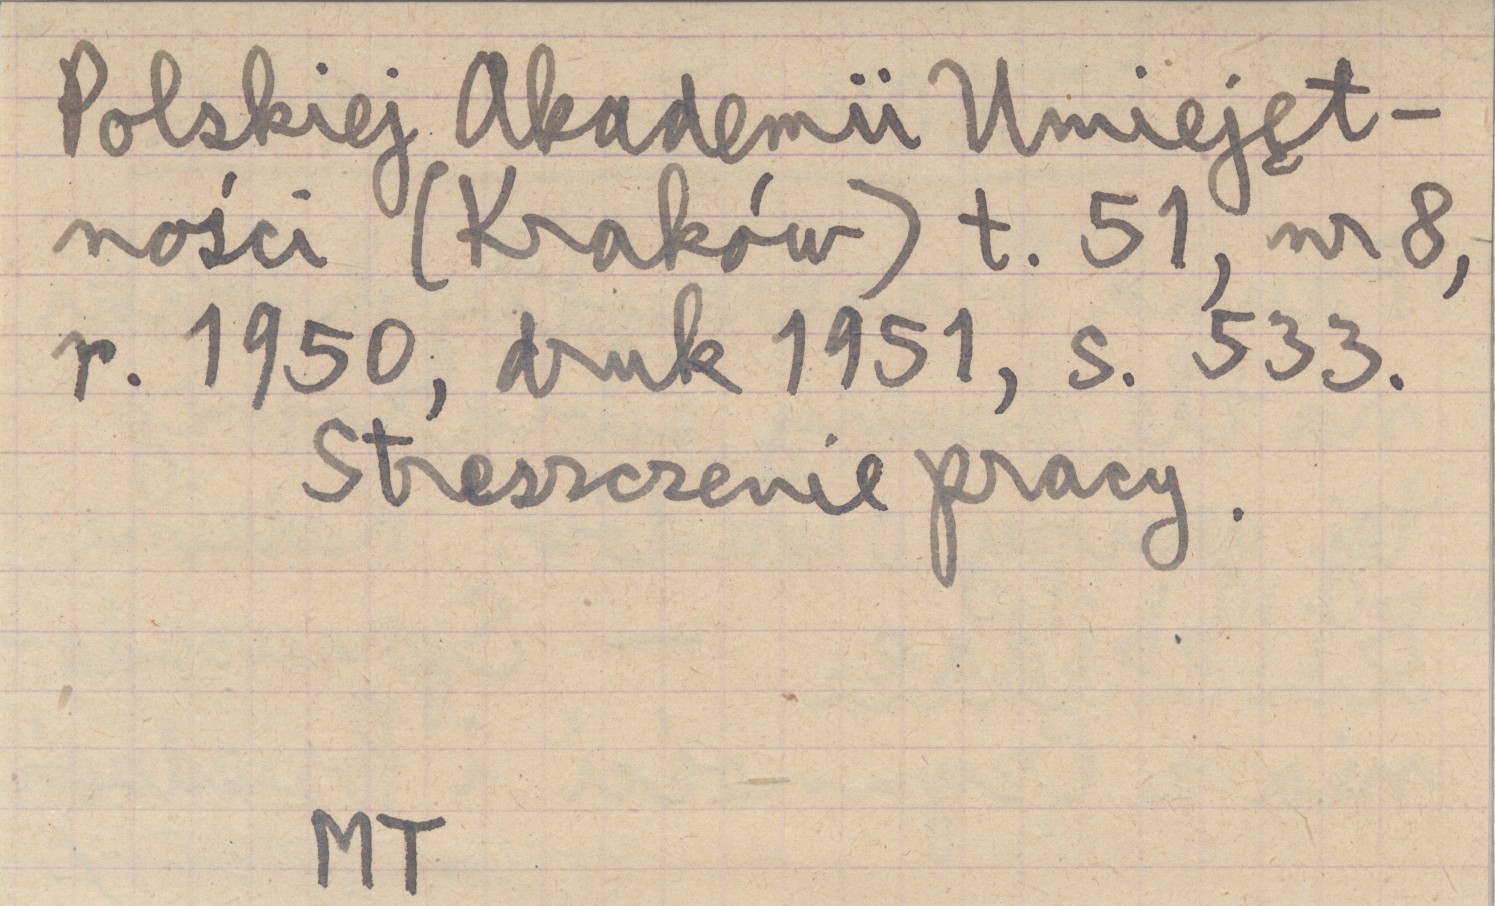 Polskiej Akademii Umiejęt-
ności (Kraków) t. 51, nr 8,
r. 1950, druk 1951, s. 533.
Streszczenie pracy.
MT